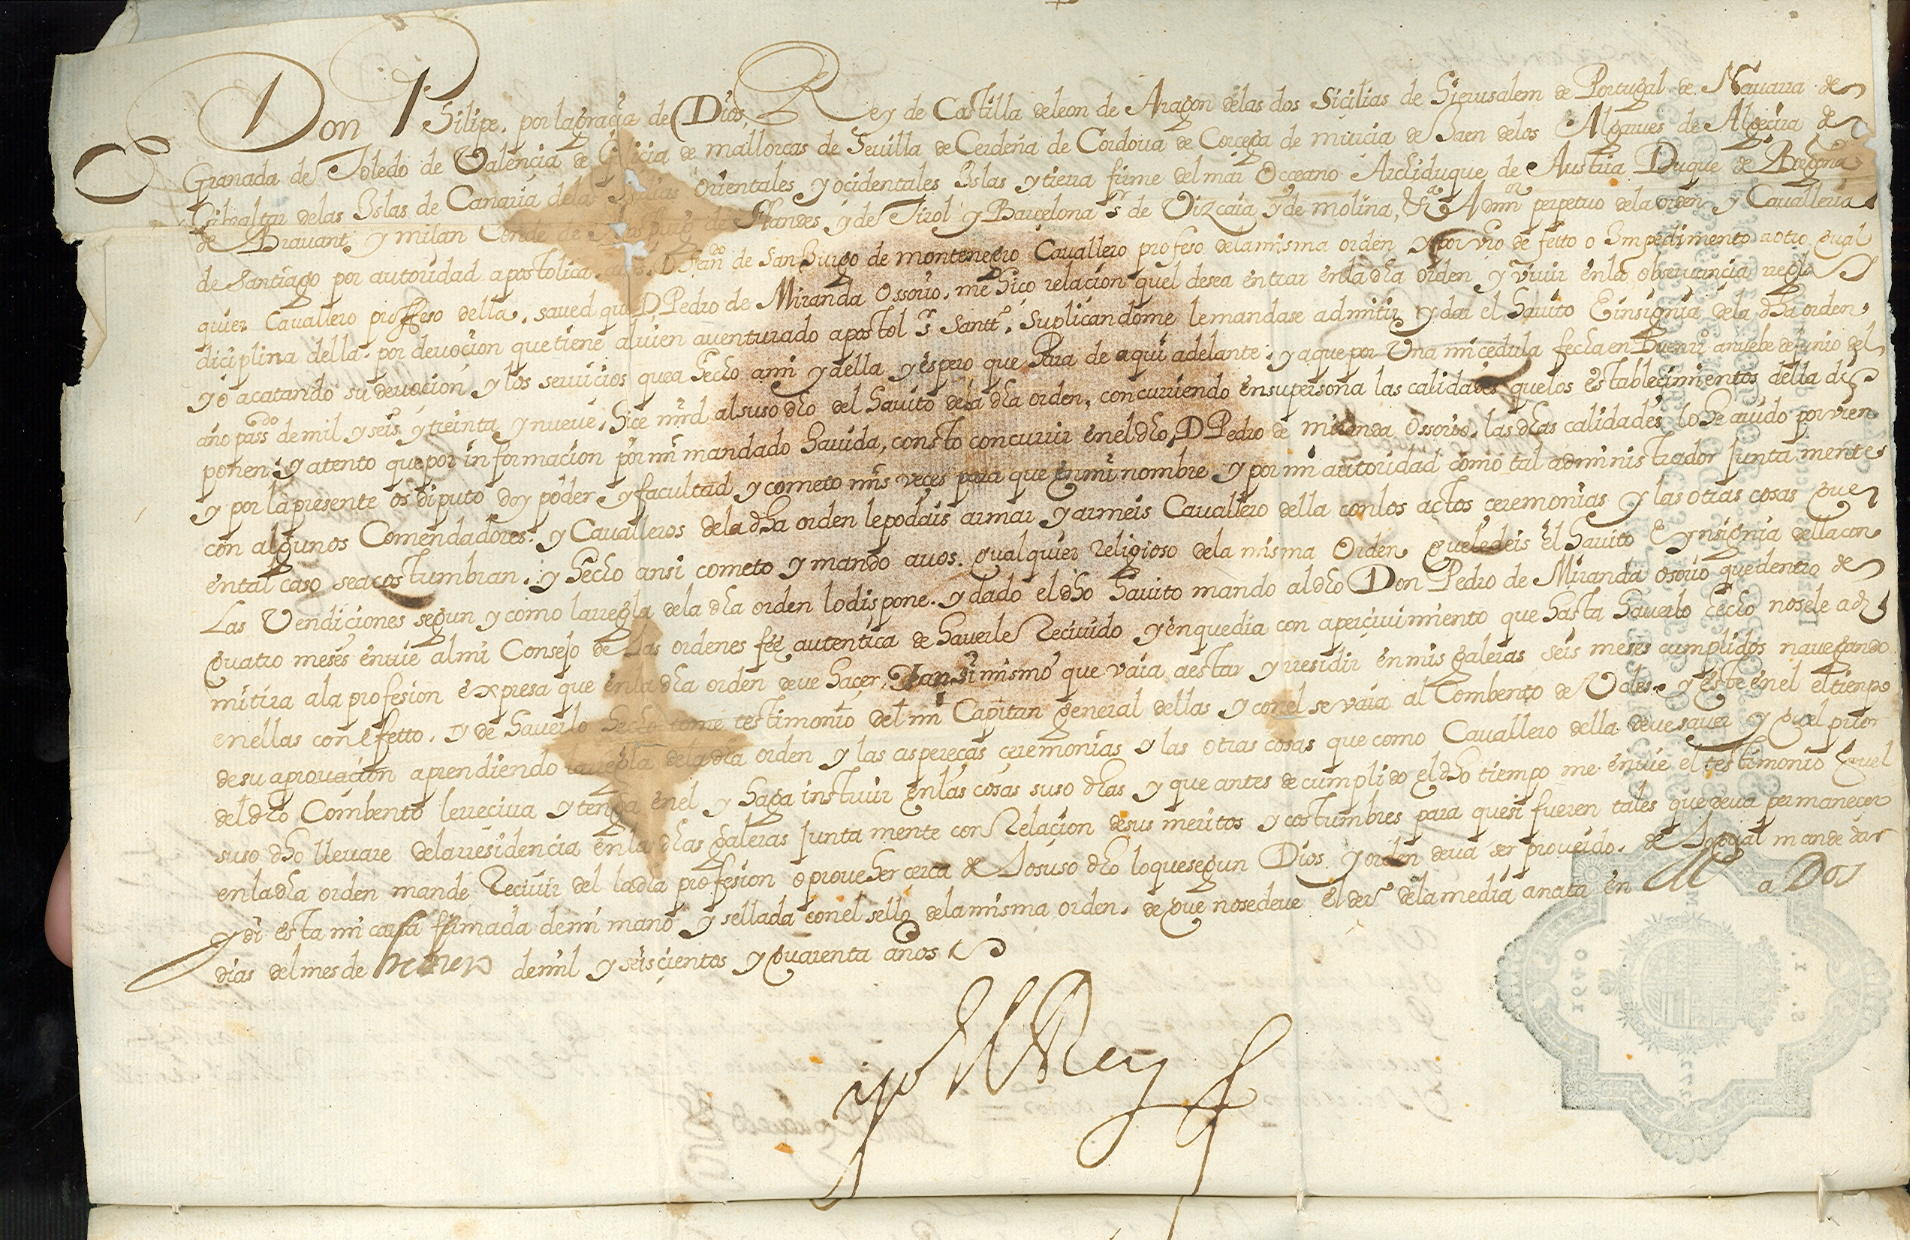 Don Philipe, por la gracia de Dios, Rey de Castilla de leon de Aragon de las dos Sicilias de Hierusalem de Portugal de Navarra de
Granada de Toledo de Valencia de Galicia de mallorcas de Sevilla de Cerdeña de Cordova de Corcega de murcia de Jaen de los Algarves de Algecira de
Gibraltar de las Islas de Canaria de las Indias orientales y ocidentales Islas y tierra firme del mar Occeano Archiduque de Austria Duque de Borgoña
de Bravant y milan Conde de Flandes y de Tirol y Barcelona s.r de Vizcaia y de molina, &.a Adm.or perpetuo de la orden y Cavalleria
de Santiago por autoridad apostolica. a vos D. Fern.do de San de montenegro Cavallero profeso de la misma orden y por vro defetto o impedimento a otro qual
quier Cavallero proffeso della. saved que D Pedro de Miranda Ossorio, me hiço relacion quel desea entrar en la dha orden y vivir en la observancia regla y
diciplina della. por devocion que tiene al vien aventurado apostol s.r Santt.o, suplicandome le mandase admitir y dar el havito E insignia de la dha orden,
y yo acatando su devocion y los servicios que a hecho a mi y della y espero que hara de aqui adelante; y a que por Una mi cedula fecha en a nuebe de junio del
año pass.do de mil y seis y treinta y nueve, hice mrd al suso dho del havito de la dha orden, concurriendo en su persona las calidades que los establecimientos della dis
ponen; y atento que por informacion por mi mandado havida, consto concurrir en el dho D Pedro de miranda Ossorio, las dhas calidades lo he avido por vien
y por la presente os diputo doy poder y facultad y cometo mis veçes para que en mi nombre y por mi autoridad como tal administrador juntamente
con algunos Comendadores, y Cavalleros de la dha orden le podais armar y armeis Cavallero della con los actos ceremonias y las otras cosas que
en tal caso se acostumbran, y hecho ansi cometo y mando a vos. qualquier religioso de la misma Orden que le deis el havito E ynsignia della con
Las Vendiciones segun y como la regla de la dha orden lo dispone. y dado el dho havito mando al dho Don Pedro de Miranda osorio que dentro de
quatro meses envie al mi Consejo de Las ordenes fee autentica de haverle Recivido y en que dia con aperçivimiento que hasta haverlo hecho no se le ad
mitira a la profesion expresa que en la dha orden deve haçer, y ansi mismo que vaia a estar y rresidir en mis galeras seis meses cumplidos navegando
en ellas con efetto, y de haverlo hecho tome testimonio del mi Capitan general dellas y con el se vaia al Combento de Ucles, y este en el el tienpo
de su aprovacion aprendiendo la rregla de la dha orden y las aspereças ceremonias y las otras cosas que como Cavallero della deve saver y quel prior
del dho Combento le rreciva y tenga en el y haga instruir en las cosas suso dhas y que antes de cumplido el dho tiempo me envie el testimonio quel
suso dho llevare de la rresidencia en las dhas galeras juntamente con Relaçion de sus meritos y costumbres para que si fueren tales que deva permanecer
en la dha orden mande Recivir del la dha profesion o provea cerca de Lo suso dho lo que segun Dios y orden deva ser proveido. de Lo qual mande dar
y di esta mi carta firmada de mi mano y sellada con el sello de la misma orden. de que no se deve el der.o de la media anata en M.d a Dos
dias del mes de de mil y seisçientos y quarenta años
yo el Rey
1640